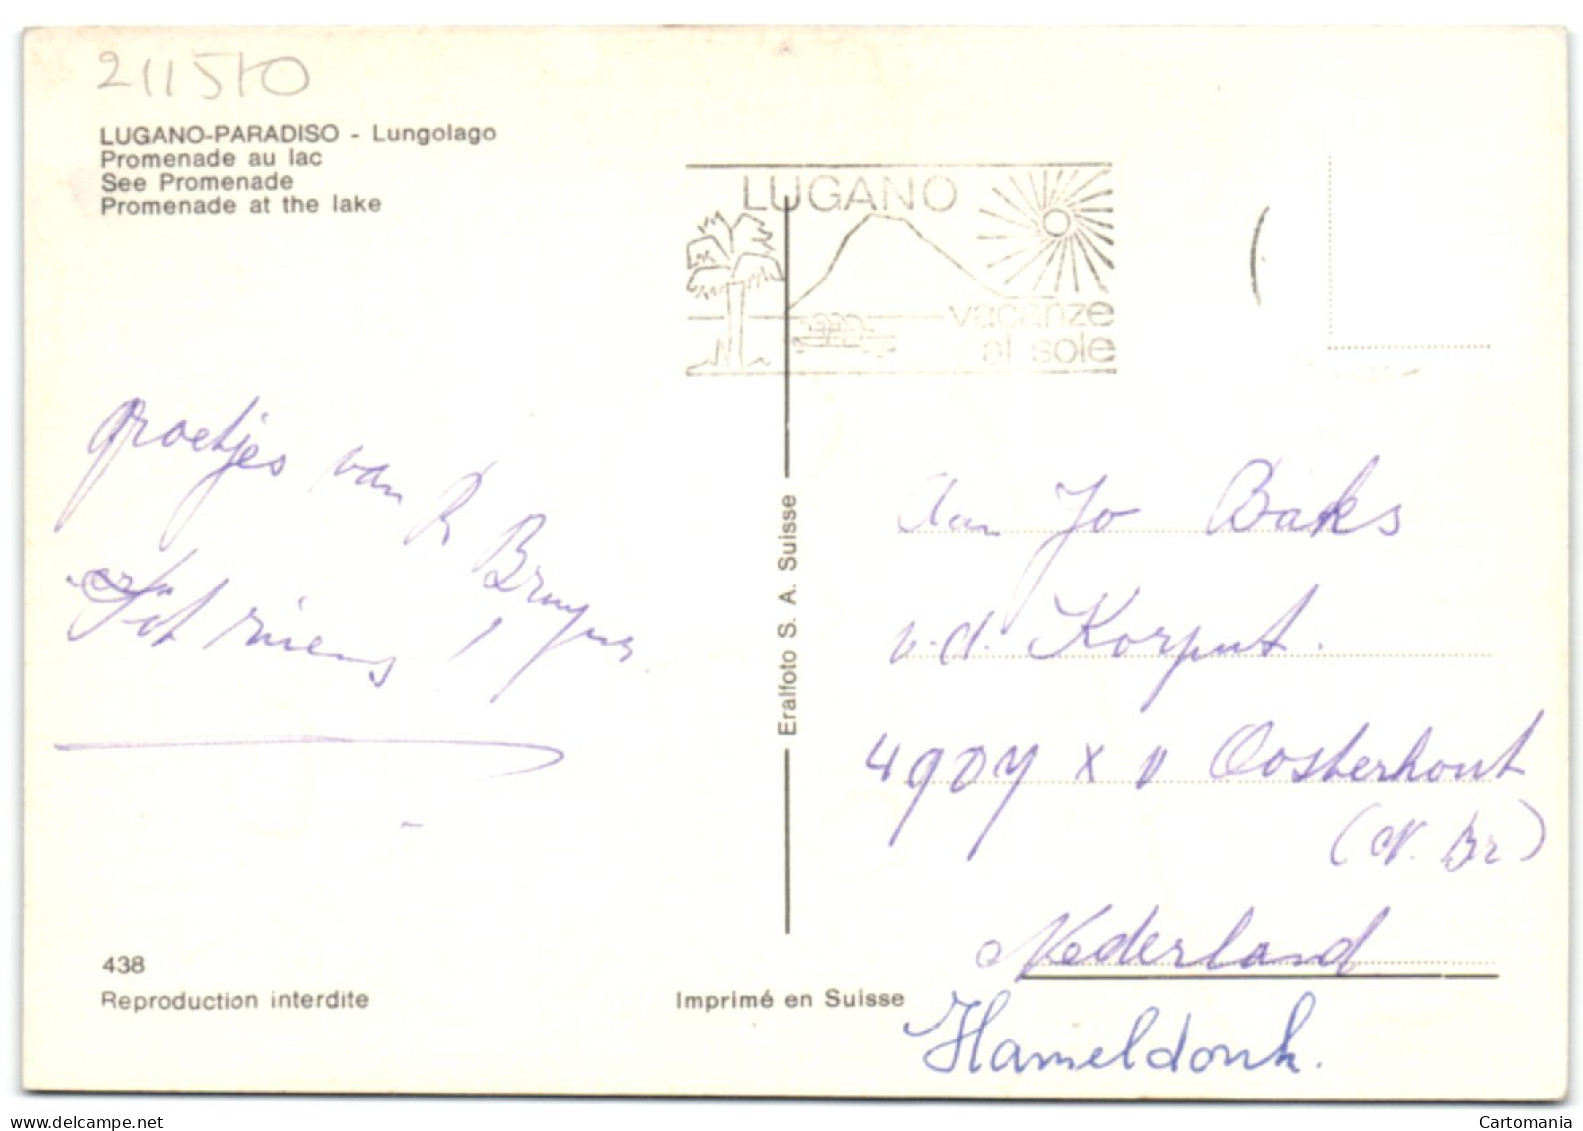 211510
LUGANO-PARADISO - Lungolago
Promenade au lac
See Promenade
Promenade at the lake
LUGANO
vacanze
al sole
groetjes van R Bruyns
Eralfoto S. A. Suisse
Aan Jo Baks
v.d. Korput.
4907 X V Oosterhout
(N. Br)
Nederland
Hameldonk.
438
Reproduction interdite
Imprimé en Suisse
delcampe.net
Cartomania